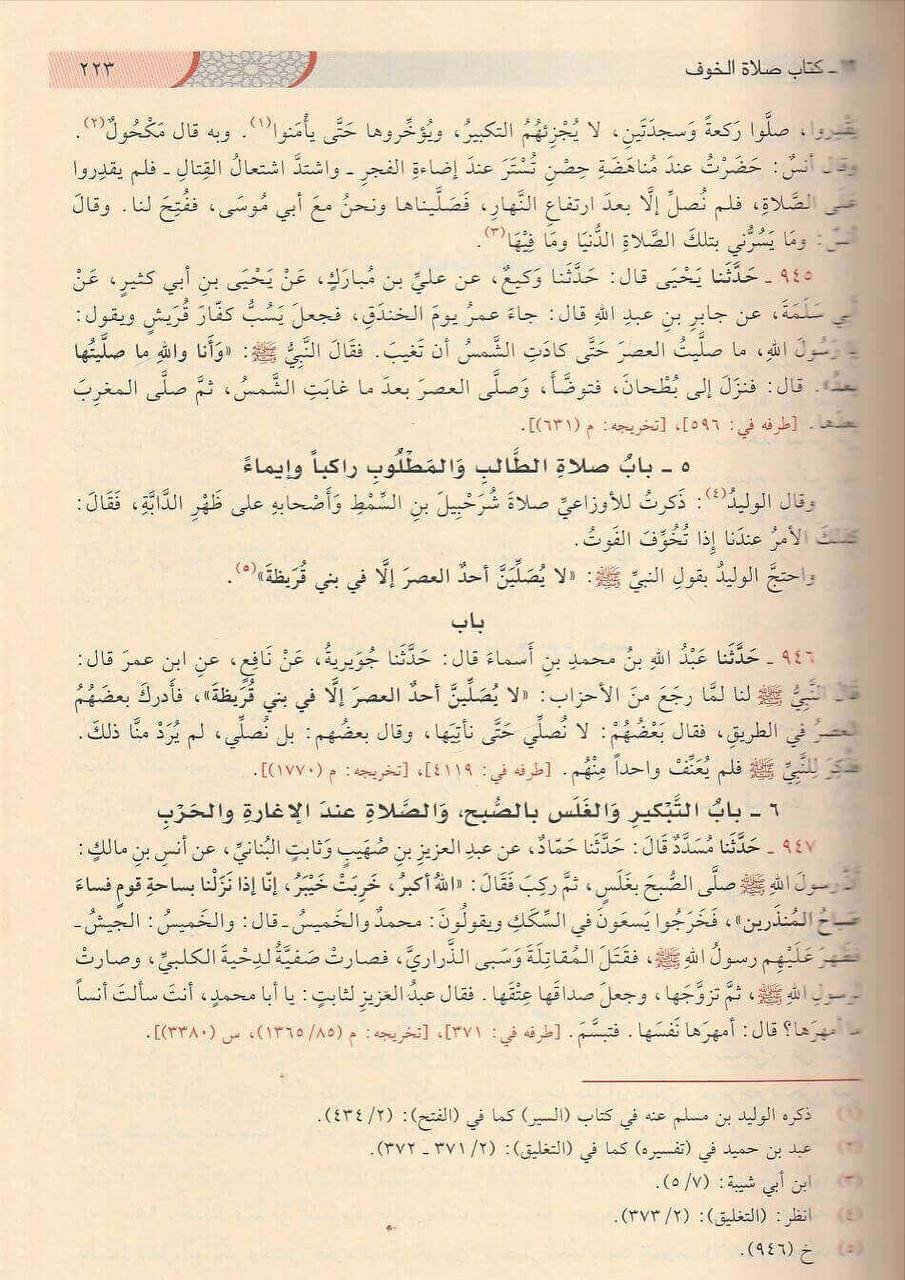 ١٢ - كتاب صلاة الخوف ٢٢٣
يَقْدِروا، صلَّوا رَكعةً وَسجدَتَينِ، لا يُجْزِئهُمُ التكبيرُ، ويُؤخِّروها حَتَّى يأْمَنوا(١). وبه قال مَكْحُولٌ(٢).
وقال أنسٌ: حَضَرْتُ عندَ مُناهَضَةِ حِصْنِ تُسْتَرَ عندَ إضاءةِ الفجرِ ـ واشتدَّ اشتعالُ القِتالِ ـ فلم يقدِروا
عَلَى الصَّلاةِ، فلم نُصلِّ إلَّا بعدَ ارتفاعِ النَّهارِ، فَصَلَّيناها ونحنُ معَ أبي مُوسَى، ففُتِحَ لنا. وقالَ
أنسٌ: ومَا يَسُرُّني بتلكَ الصَّلاةِ الدُّنيَا ومَا فِيْهَا(٣).
٩٤٥ ـ حَدَّثَنا يَحْيَى قال: حَدَّثَنا وَكيعٌ، عن عليِّ بن مُبارَكٍ، عَنْ يَحْيَى بنِ أبي كثيرٍ، عَنْ
أبي سَلَمَةَ، عن جابرِ بن عبدِ اللهِ قال: جاءَ عمرُ يومَ الخندَقِ، فجعلَ يَسُبُّ كفّارَ قُرَيشٍ ويقول:
يا رَسُولَ اللهِ، ما صلَّيتُ العصرَ حَتَّى كادَتِ الشَّمسُ أن تَغيبَ. فقَالَ النَّبيُّ ﷺ: «وَأَنا واللهِ ما صلَّيتُها
بعدُ». قال: فنزَلَ إلى بُطْحانَ، فتوضَّأَ، وَصلَّى العصرَ بعدَ ما غابَتِ الشَّمسُ، ثمَّ صلَّى المغربَ
بعدَها. [طرفه في: ٥٩٦]، [تخريجه: م (٦٣١)].
٥ ـ بابُ صلاةِ الطَّالبِ وَالمَطْلُوبِ راكباً وإيماءً
وقال الوليدُ(٤): ذَكرتُ للأوزاعيِّ صلاةَ شُرَحْبِيلَ بنِ السِّمْطِ وَأصْحابهِ على ظَهْرِ الدَّابَّةِ، فَقَالَ:
كذلكَ الأمرُ عندَنا إذا تُخُوِّفَ الفَوتُ.
واحتجَّ الوليدُ بقولِ النبيِّ ﷺ: «لا يُصَلِّيَنَّ أحدٌ العصرَ إلَّا في بني قُرَيظةَ»(٥).
باب
٩٤٦ ـ حَدَّثَنا عَبْدُ اللهِ بنُ محمدِ بنِ أَسماءَ قال: حَدَّثَنا جُوَيريةُ، عَنْ نَافعٍ، عنِ ابن عمرَ قال:
قالَ النَّبيُّ ﷺ لنا لمَّا رجَعَ منَ الأحزابِ: «لا يُصَلِّيَنَّ أحدٌ العصرَ إلَّا في بني قُرَيظةَ»، فأدركَ بعضَهُمُ
العصرُ في الطريقِ، فقال بَعْضُهُمْ: لا نُصلِّي حَتَّى نأتيَها، وقال بعضُهم: بل نُصلِّي، لم يُرَدْ منَّا ذلكَ.
فذُكرَ لِلنَّبيِّ ﷺ فلم يُعَنِّفْ واحداً مِنْهُم. [طرفه في: ٤١١٩]، [تخريجه: م (١٧٧٠)].
٦ ـ بابُ التَّبْكيرِ وَالغَلَسِ بالصُّبحِ، وَالصَّلاةِ عندَ الإغارةِ والحَرْبِ
٩٤٧ ـ حَدَّثَنا مُسَدَّدٌ قَالَ: حَدَّثَنا حَمَّادٌ، عن عبدِ العزيزِ بنِ صُهَيبٍ وَثابتٍ البُنانيِّ، عن أنسِ بنِ مالكٍ:
أنَّ رسولَ اللهِ ﷺ صلَّى الصُّبحَ بغَلَسٍ، ثم رَكِبَ فَقَالَ: «اللهُ أكبرُ، خَرِبَتْ خَيْبَرُ، إنّا إذا نَزَلْنا بساحةِ قومٍ فساءَ
صَباحُ المُنذَرين»، فَخَرَجُوا يَسعَونَ في السِّكَكِ ويقولُونَ: محمدٌ والخَميسُ ـ قال: والخَميسُ: الجيشُ ـ
فظهرَ عَلَيْهِم رسولُ اللهِ ﷺ، فقَتَلَ المُقاتِلَةَ وَسَبى الذَّراريَّ، فصارتْ صَفيَّةُ لدِحْيةَ الكلبيِّ، وصارتْ
لرسولِ اللهِ ﷺ، ثمَّ تزوَّجَها، وجعلَ صداقَها عِتْقَها. فقال عبدُ العزيزِ لثابتٍ: يا أبا محمدٍ، أنتَ سألتَ أنساً
ما أمهرَها؟ قال: أمهرَها نَفْسَها. فتبسَّمَ. [طرفه في: ٣٧١]، [تخريجه: م (١٣٦٥/٨٥)، س (٣٣٨٠)].
(١) ذكره الوليد بن مسلم عنه في كتاب (السير) كما في (الفتح): (٤٣٤/٢).
(٢) عبد بن حميد في (تفسيره) كما في (التغليق): (٣٧١/٢ ـ ٣٧٢).
(٣) ابن أبي شيبة: (٥/٧).
(٤) انظر: (التغليق): (٣٧٣/٢).
(٥) خ (٩٤٦).